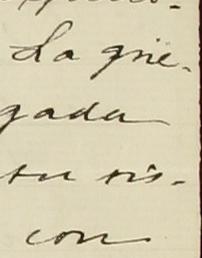 La grie-
gada
su vis-
con